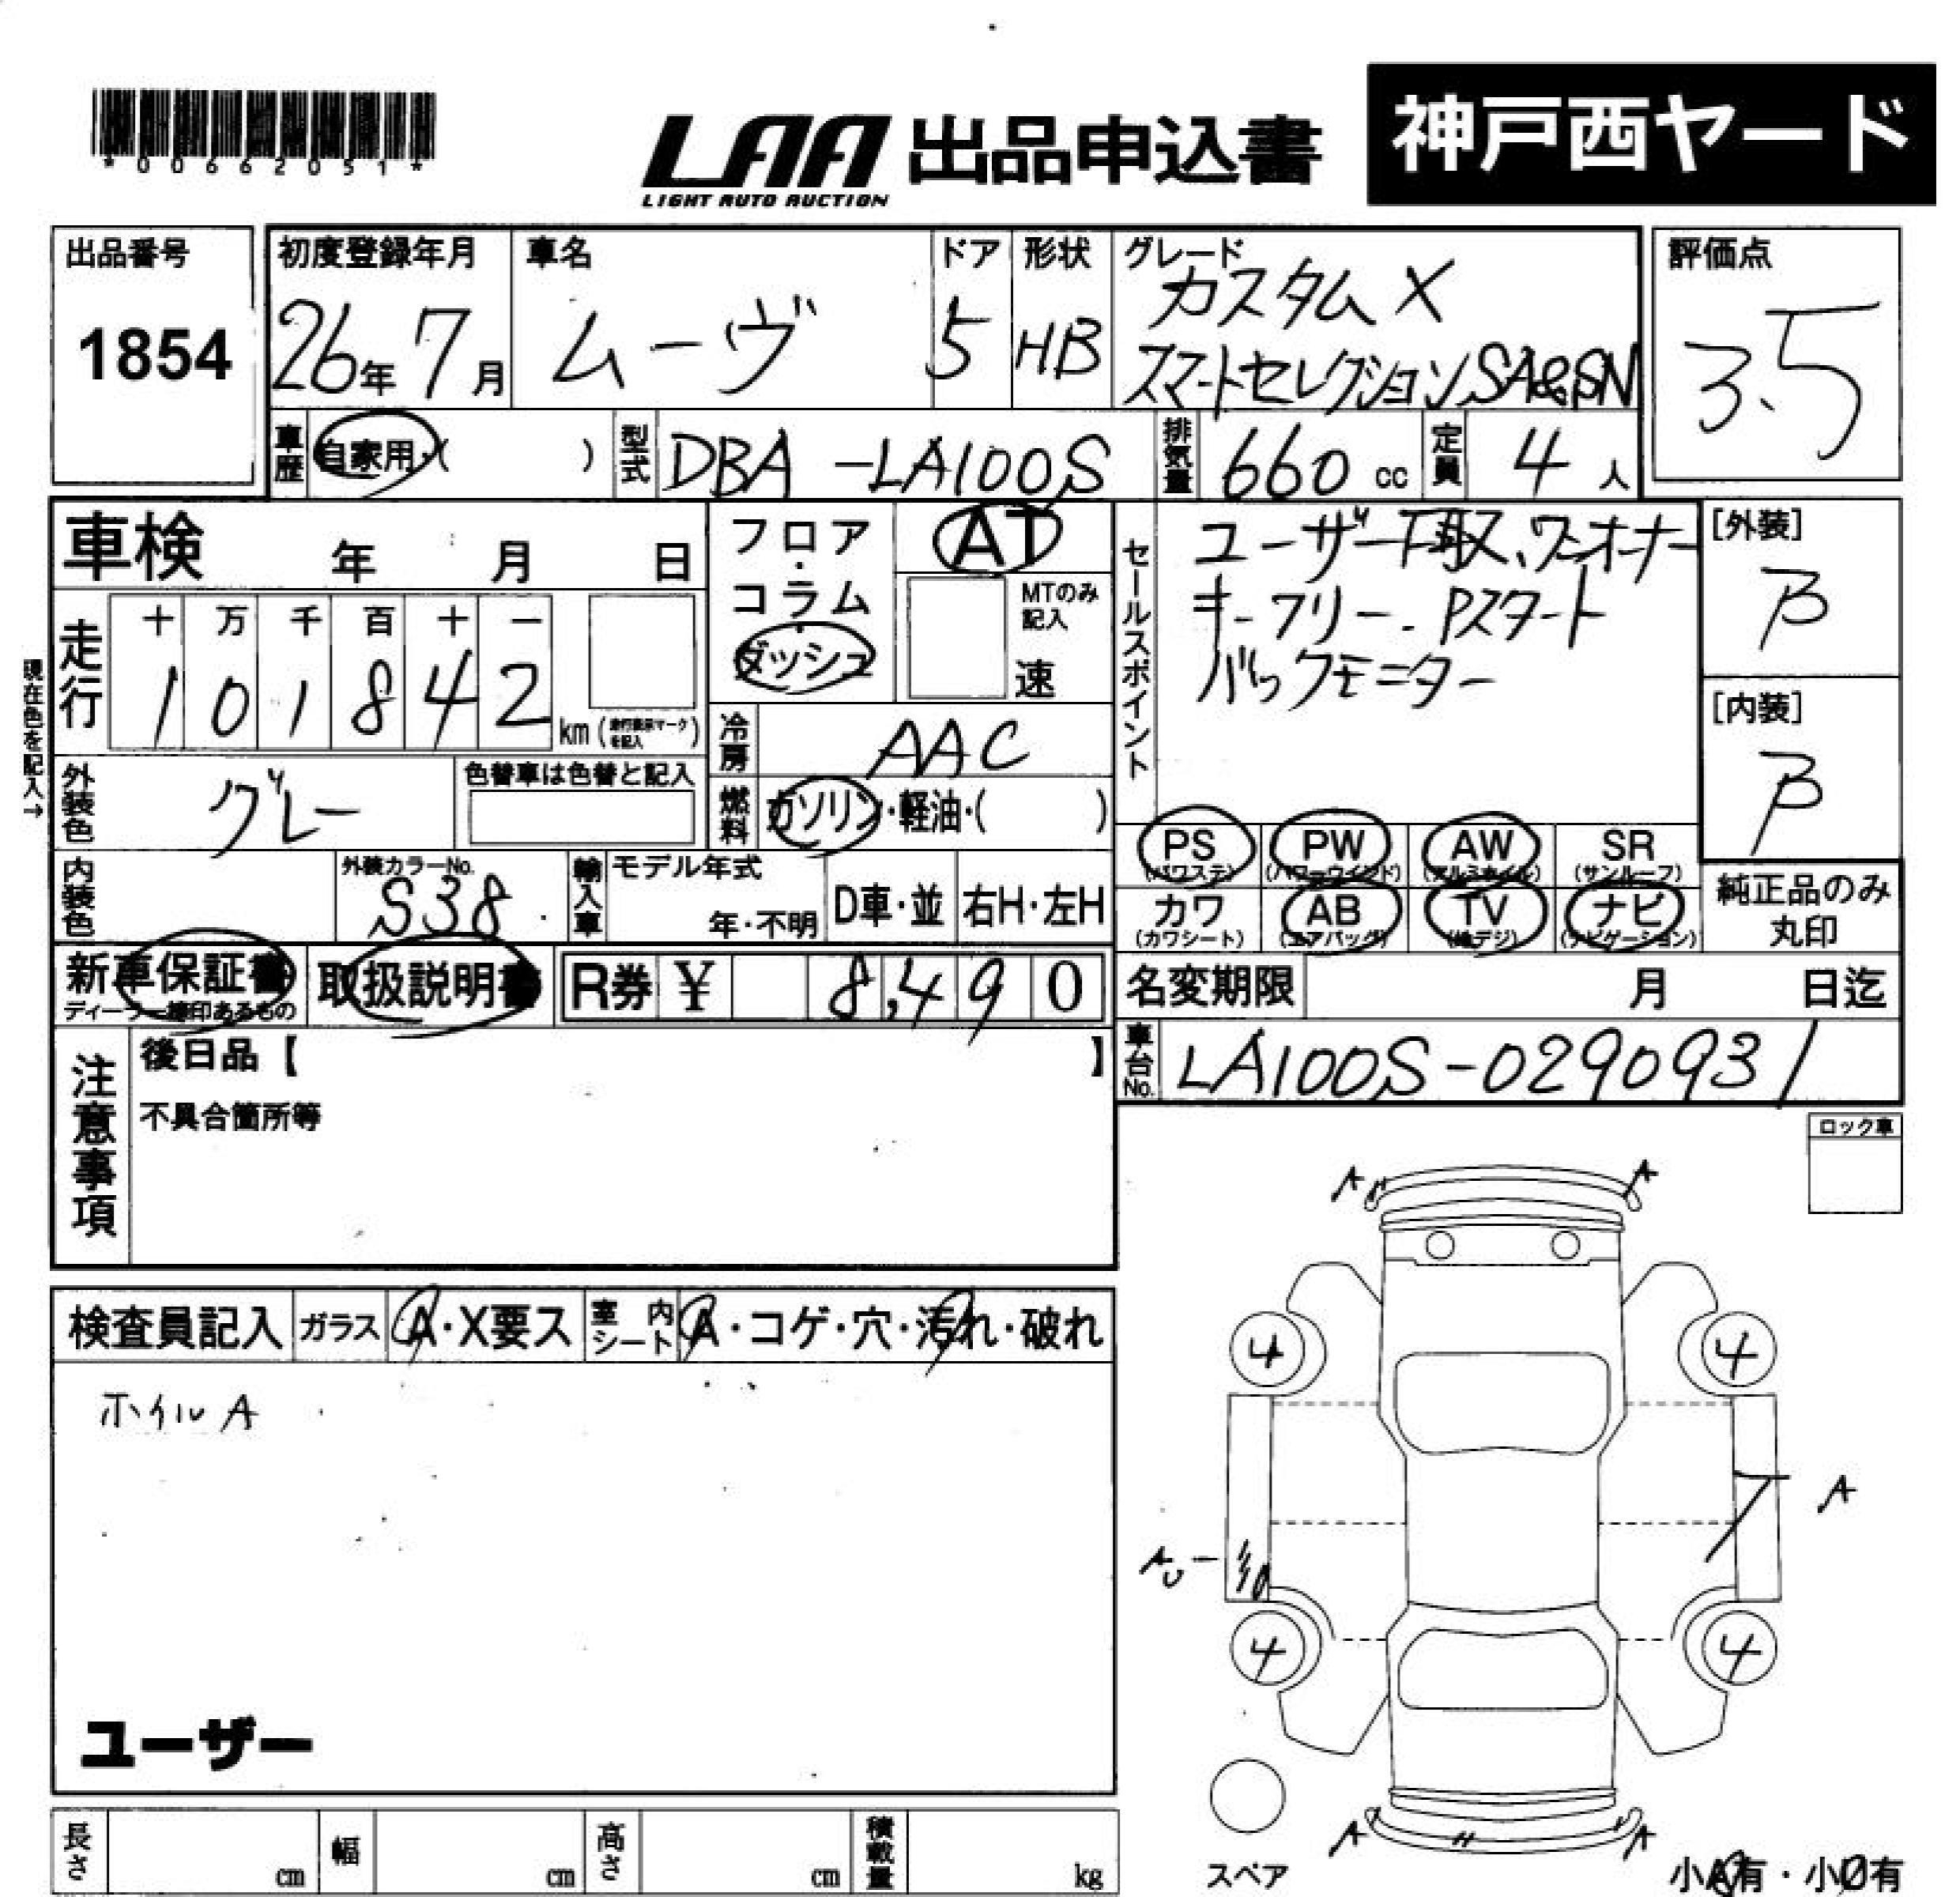 *00662051*
LAA 出品申込書 神戸西ヤード
LIGHT AUTO AUCTION
出品番号 初度登録年月 車名 ドア 形状 グレード 評価点
1854 26年7月 ムーヴ 5 HB カスタムX 3.5
スマートセレクションSA&SN
車歴 自家用・( ) 型式 DBA-LA100S 排気量 660cc 定員 4人
車検 年 月 日
フロア・コラム・ダッシュ AT
MTのみ記入 速
セールスポイント
ユーザー下取、ワンオーナー
キーフリー、Pスタート
バックモニター
[外装]
B
[内装]
B
現在色を記入→
走行 十 万 千 百 十 一
1 0 1 8 4 2 km(走行表示マークを記入)
冷房 AAC
外装色 グレー 色替車は色替と記入
燃料 ガソリン・軽油・( )
PS PW AW SR
(パワステ) (パワーウインド) (アルミホイル) (サンルーフ)
カワ AB TV ナビ
(カワシート) (エアバッグ) (地デジ) (ナビゲーション)
純正品のみ
丸印
内装色 外装カラーNo. S38 輸入車 モデル年式 年・不明 D車・並 右H・左H
新車保証書 取扱説明書 R券 ¥ 8,490
名変期限 月 日迄
車台No. LA100S-0290931
注意事項
後日品【 】
不具合箇所等
ロック車
検査員記入 ガラス A・X要ス 室内シート A・コゲ・穴・汚れ・破れ
ホイルA
ユーザー
A A
4 4
A
AU
4 4
A A
スペア
小A有・小U有
長さ cm 幅 cm 高さ cm 積載量 kg